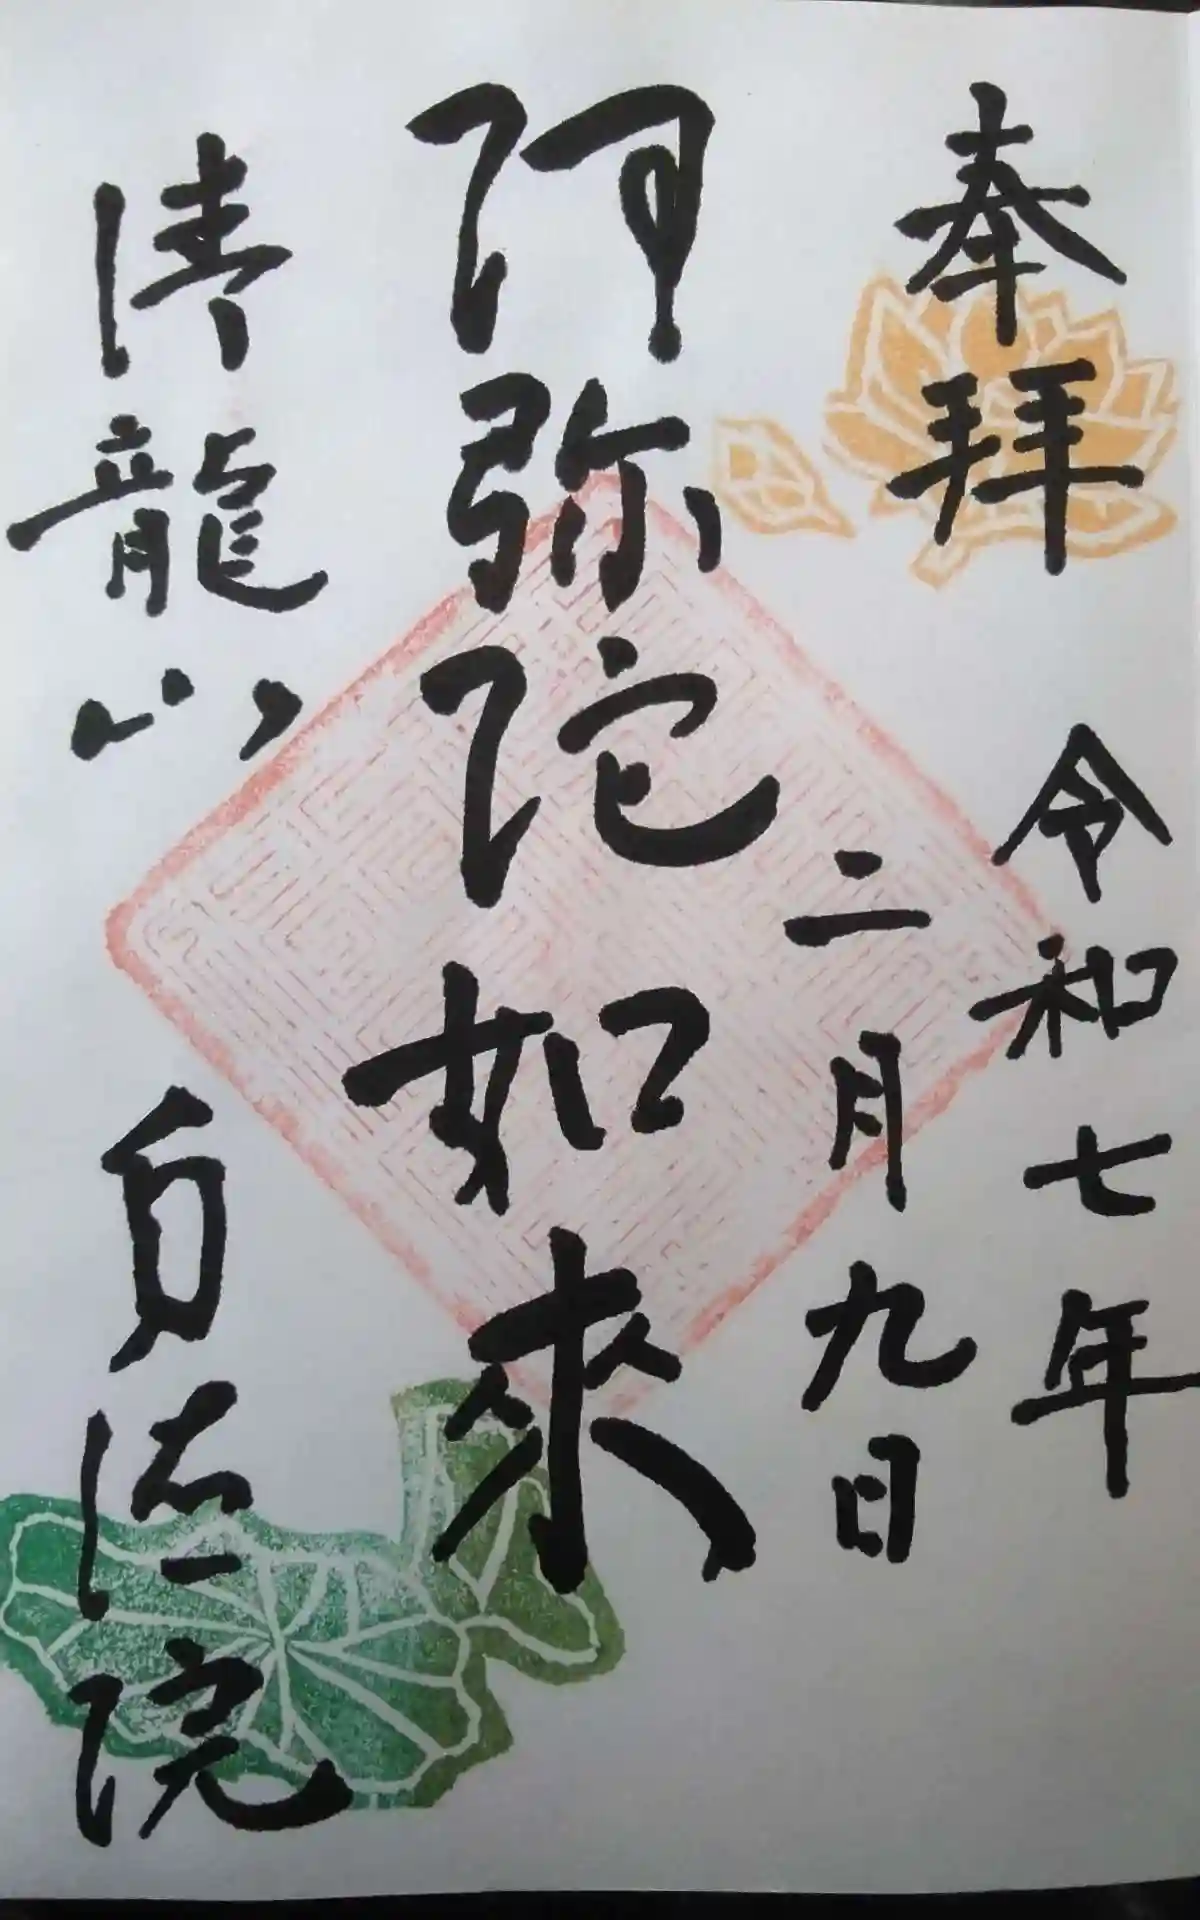 奉拝
令和七年
二月九日
阿弥陀如來
清龍山
院